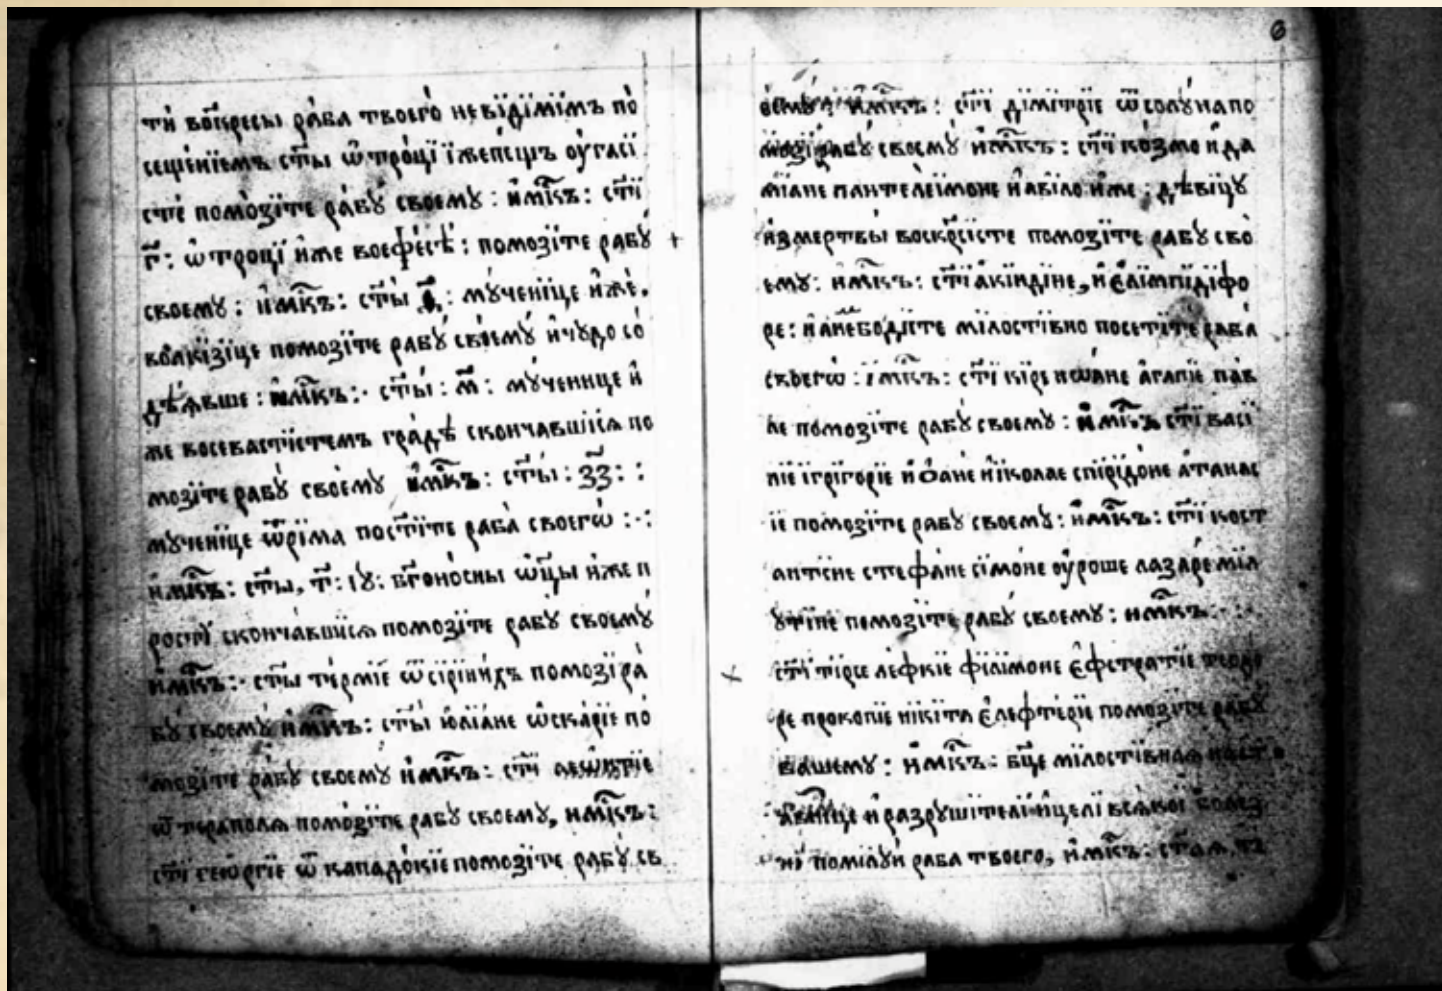 ти воскресы раба твоего невїдїмїмъ по
сещенїемъ ст҃ы ѿтроцї їже пещъ оугасї
сте помозїте рабꙋ своемꙋ : имк҃ъ : ст҃ї
г҃ : ѡтроцї иже воефесѣ : помозїте рабꙋ
своемꙋ : имк҃ъ : ст҃ы : мꙋченїце иже
помозїте рабꙋ своемꙋ и чꙋдо со
дѣꙗвше : имк҃ъ : ст҃ы : м҃ : мꙋченице и
же восевастїстемъ градѣ скончавшїсѧ по
мозїте рабꙋ своемꙋ имк҃ъ : ст҃ы :
мꙋченїце ѿ рїма посѣтїте раба своегѡ :
имк҃ъ : ст҃ы т҃ : їꙋ : бг҃оносны ѡц҃ы иже п
скончавшїсѧ помозїте рабꙋ своемꙋ
имк҃ъ : ст҃ы термїе ѿ помозї ра
бꙋ своемꙋ имк҃ъ : ст҃ы юлїане ѡскарїе по
мозїте рабꙋ своемꙋ имк҃ъ : ст҃ї леѡнтїе
ѿ тераполѧ помозїте рабꙋ своемꙋ, имк҃ъ :
ст҃ї геѡргїе ѿ кападокїе помозїте рабꙋ св
оемꙋ : имк҃ъ : ст҃ї дїмїтрїе ѿ солꙋна по
мозї рабꙋ своемꙋ имк҃ъ : ст҃ї козмо и да
мїане пантелеїмоне и авїло иже : дѣвїцꙋ
из мертвы воскрсїсте помозїте рабꙋ сво
емꙋ : имк҃ъ : ст҃ї акїндїне, и елїмпїдїфо
ре : и мїлостївно посетїте раба
своегѡ : їмк҃ъ : ст҃ї кїре иѡане агапїе пав
ле помозїте рабꙋ своемꙋ : имк҃ъ ст҃ї васї
лїе їгрїгорїе и ѻане нїколае спїрїдоне атанас
їе помозїте рабꙋ своемꙋ : имк҃ъ : ст҃ї кост
антїне стефане сїмоне оуроше лазаре мїл
ꙋтїне помозїте рабꙋ своемꙋ : имк҃ъ :
ст҃ї тїрсе лефкїе фїлїмоне ефстратїе теодо
ре прокопїе нїкїта елефтерїе помозїте рабꙋ
вашемꙋ : имк҃ъ : бц҃е мїлостївнаѧ
и разрꙋшїтелї ицелї всѧкої болез
нї помїлꙋи раба твоего, имк҃ъ : ст҃аѧ